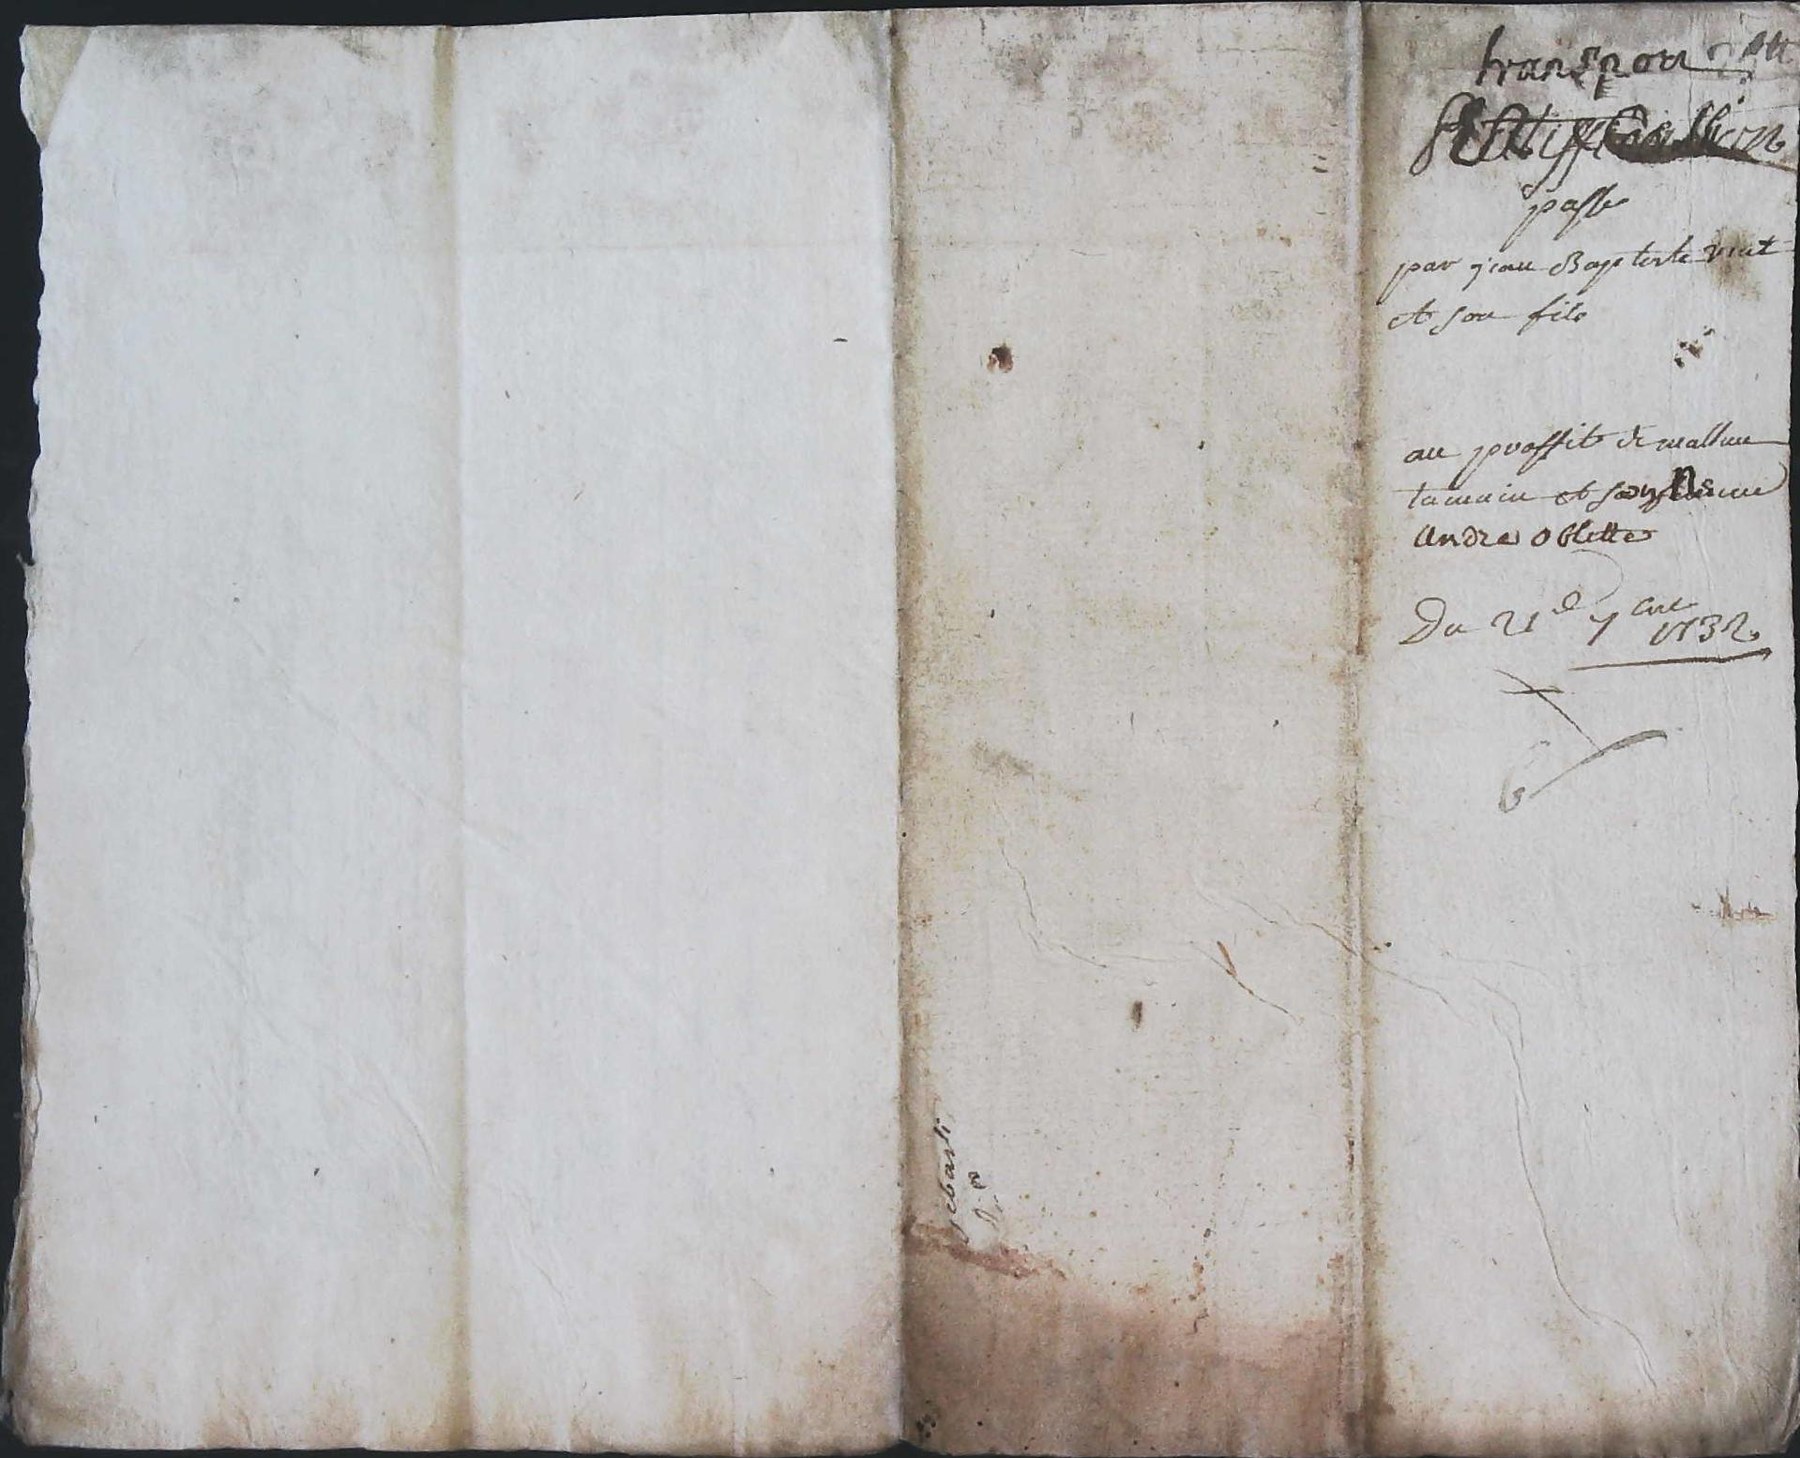 transport et
Rattiffication
passé
par jean Baptiste viat
et son fils
au proffit de
et
andre oblette
Du 21e 7 1732
sebasti